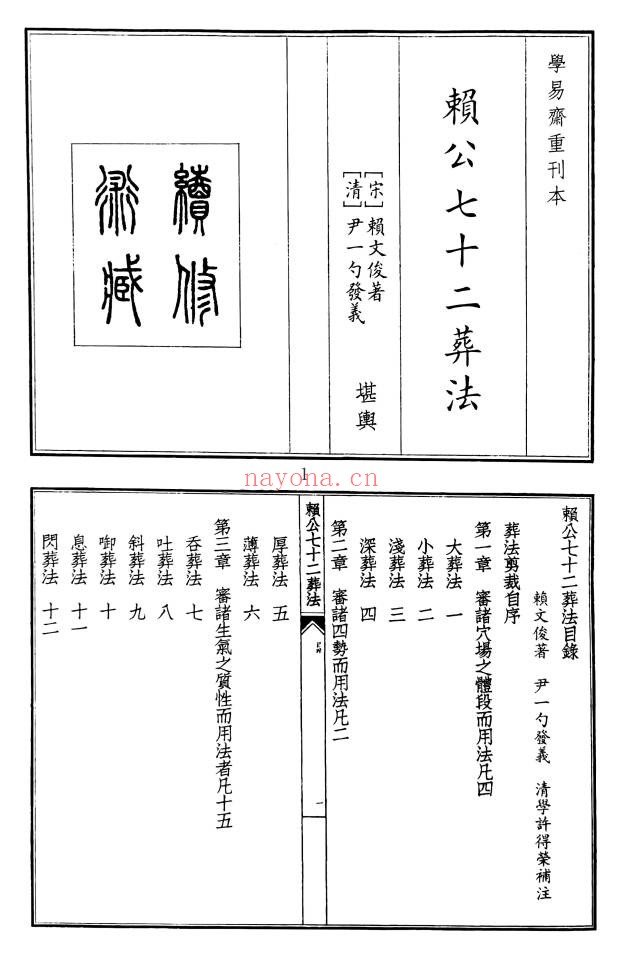 學易齋重刊本
賴公七十二葬法
[宋]賴文俊著
[清]尹一勺發義
堪輿
續修
術藏
1
nayona.cn
賴公七十二葬法目錄
賴文俊著 尹一勺發義 清學許得榮補注
葬法剪裁自序
第一章 審諸穴場之體段而用法凡四
大葬法 一
小葬法 二
淺葬法 三
深葬法 四
第二章 審諸四勢而用法凡二
賴公七十二葬法
目錄
一
厚葬法 五
薄葬法 六
第三章 審諸生氣之質性而用法者凡十五
吞葬法 七
吐葬法 八
斜葬法 九
啣葬法 十
息葬法 十一
閃葬法 十二